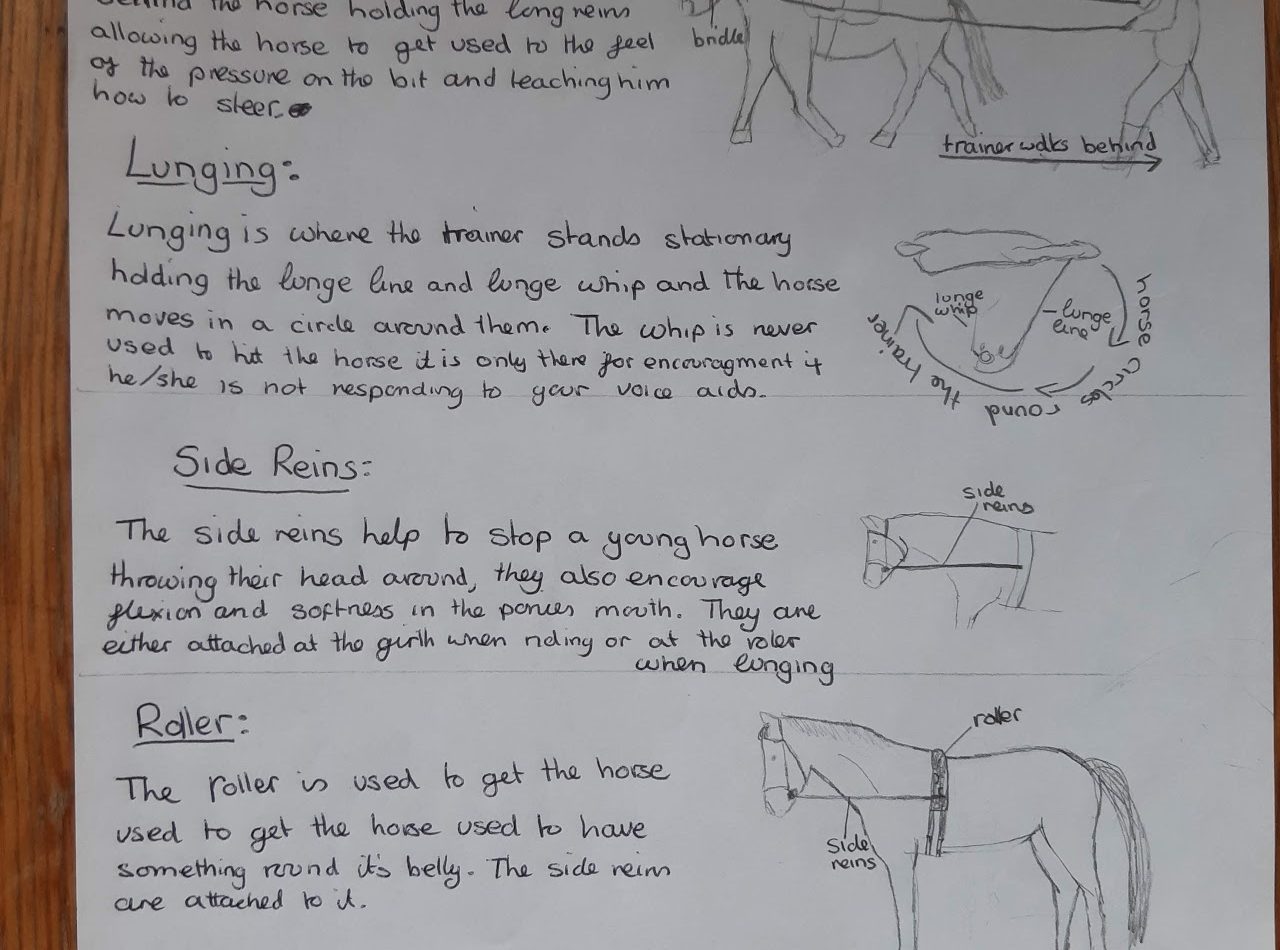 behind the horse holding the long reins
allowing the horse to get used to the feel
of the pressure on the bit and teaching him
how to steer.
bridle
trainer walks behind
Lunging:
Lunging is where the trainer stands stationary
holding the lunge line and lunge whip and the horse
moves in a circle around them. The whip is never
used to hit the horse it is only there for encouragment if
he/she is not responding to your voice aids.
lunge
whip
lunge
line
horse circles round the trainer
Side Reins:
The side reins help to stop a young horse
throwing their head around, they also encourage
flexion and softness in the ponies mouth. They are
either attached at the girth when riding or at the roler
when lunging
side
reins
Roller:
The roller is used to get the horse
used to get the horse used to have
something round it's belly. The side reins
are attached to it.
roller
side
reins